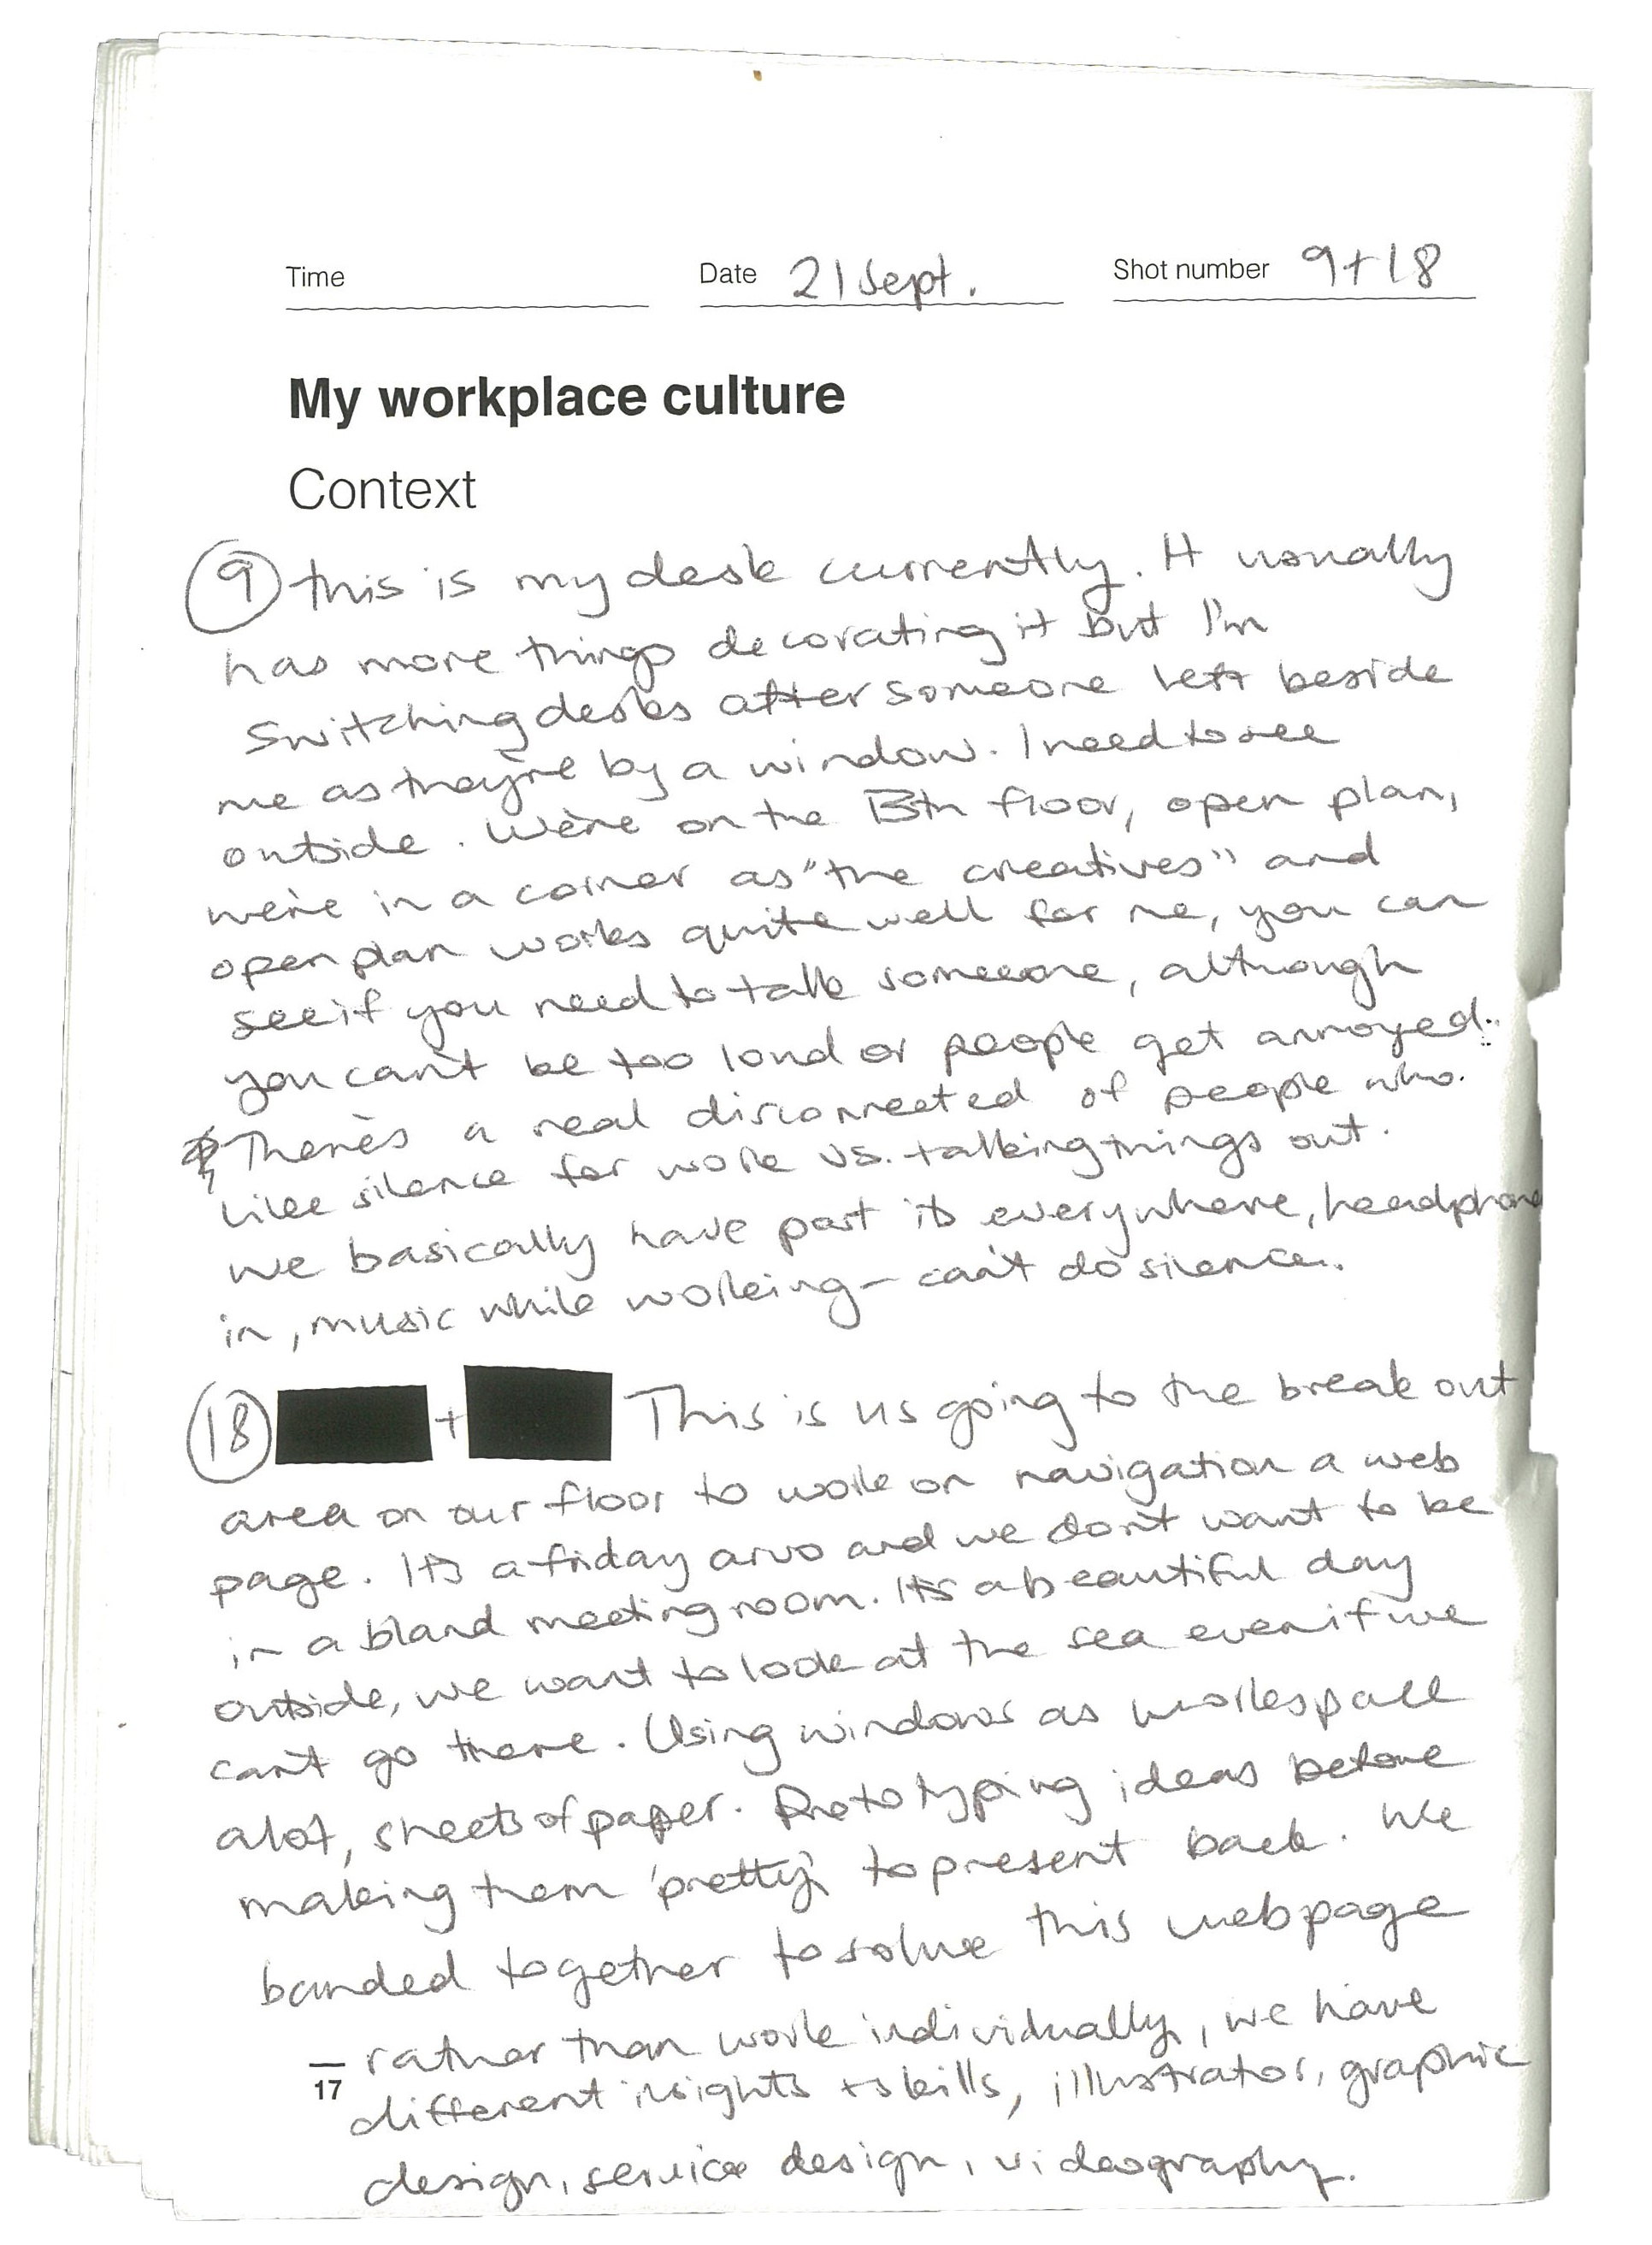 Time Date 21 Sept. Shot number 9+18
My workplace culture
Context
9 this is my desk currently. It usually
has more things decorating it but I'm
switching desks after someone left beside
me as they're by a window. I need to see
outside. We're on the floor, open plan,
we're in a corner as "the creatives" and
open plan works quite well for me, you can
see if you need to talk someone, although
you can't be too loud or people get annoyed.
There's a real disconnected of people who
like silence for work vs. talking things out.
we basically have post its everywhere, headphones
in, music while working - can't do silence.
18 + This is us going to the break out
area on our floor to work on navigation a web
page. It's a friday arvo and we don't want to be
in a bland meeting room. It's a beautiful day
outside, we want to look at the sea even if we
can't go there. Using windows as workspace
alot, sheets of paper. Prototyping ideas before
making them 'pretty' to present back. We
banded together to solve this webpage
— rather than work individually, we have
17
different insights + skills, illustrator, graphic
design, service design, videography.